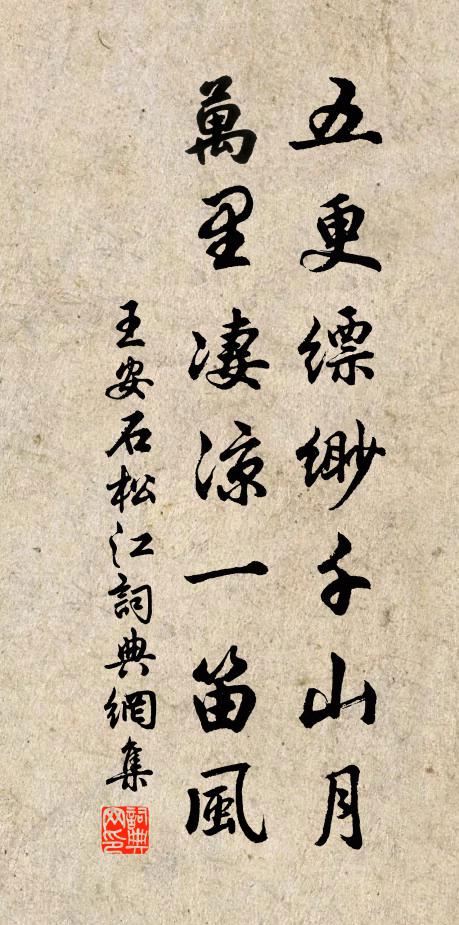 五更縹緲千山月
萬里淒涼一笛風
王安石松江詞典網集
詞典网印